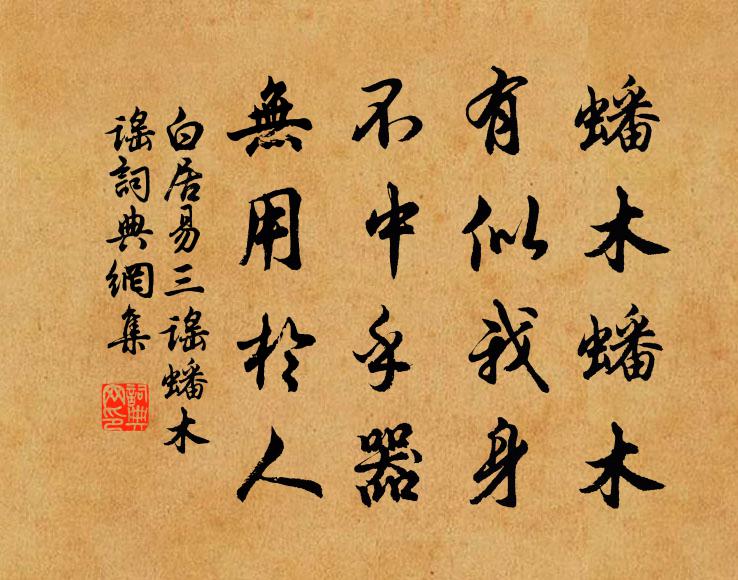 蟠木蟠木
有似我身
不中乎器
無用於人
白居易三谣蟠木
谣詞典網集
詞典网印